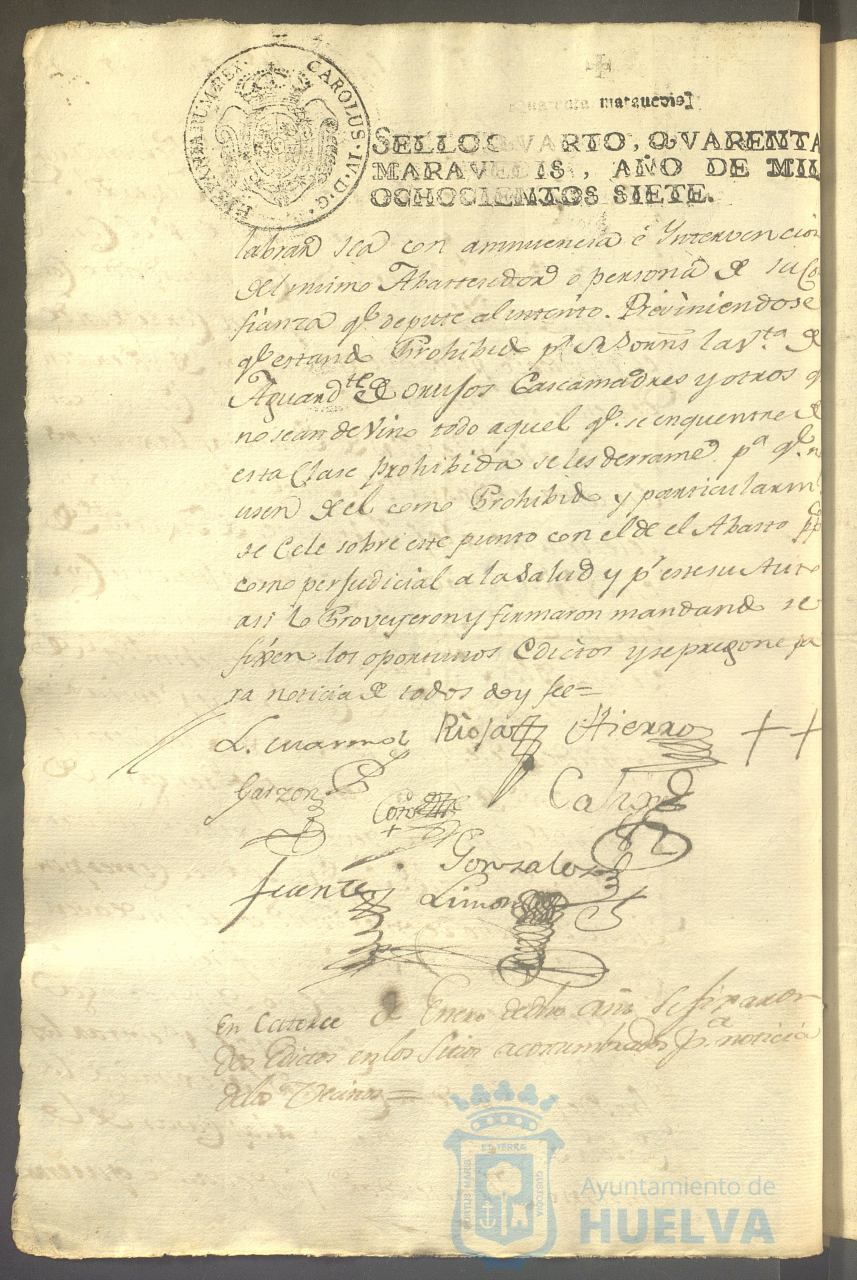 HISPANIARUM REX. CAROLUS. IV. D. G.
Quarenta marauedis
SELLO QVARTO, QVARENTA
MARAVEDIS, AÑO DE MIL
OCHOCIENTOS SIETE.
labran sea con annuencia é Yntervencion
del mimo Abastesedor o persona de su Co
fianza qe. depute al intento. Previniendose
qe. estando Prohibido pr. Rs. Ordens la vta. de
Aguardte. de orujos Cascamadres y otros q
no sean de Vino todo aquel qe. se enquentre de
esta Clase prohibida se les derrame pa. qe. n
usen del como Prohibido y particularmte
se Cele sobre este punto con el de el Abasto pp
como perjudicial a la Salud y pr. este su Auto
asi lo Proveyeron y firmaron mandando se
fixen los oportunos Edictos y se pregone pa
ra noticia de todos doy fee=
Rioja Hierro ++
Garzon
Gonsales
fuentes Limon
En Catorce de Enero de dho año se fixaron
dos Edictos en los Sitios acostumbrados pa. noticia
de los Vecinos=
Ayuntamiento de
HUELVA